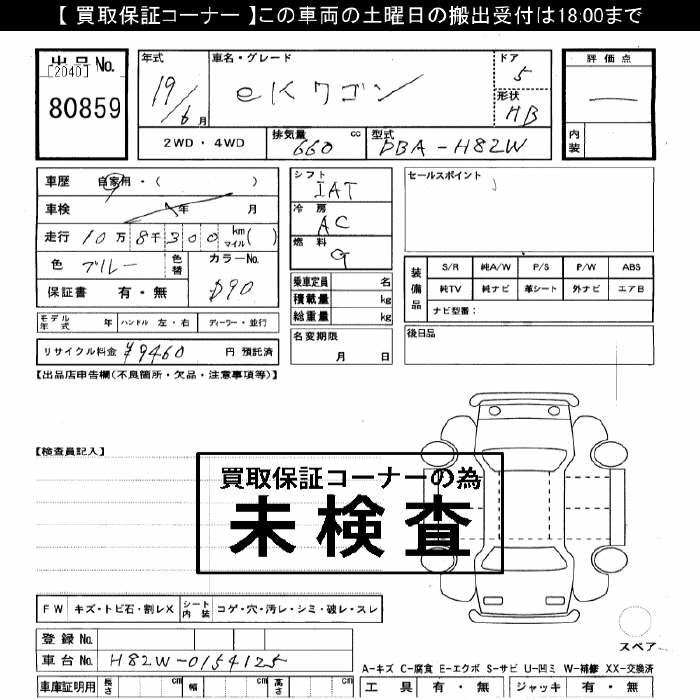 【 買取保証コーナー 】この車両の土曜日の搬出受付は18:00まで
出品No.
[2040]
80859
年式
19/6 月
車名・グレード
eKワゴン
ドア
5
形状
HB
評価点
内装
2WD・4WD
排気量 cc
660
型式
DBA-H82W
車歴 自家用・( )
車検 年 月
走行 10万8千300 km マイル( )
色 ブルー 色替
カラーNo.
D90
保証書 有・無
シフト
IAT
冷房
AC
燃料
G
乗車定員 名
積載量 kg
総重量 kg
名変期限
月 日
セールスポイント
装備品
S/R 純A/W P/S P/W ABS
純TV 純ナビ 革シート 外ナビ エアB
ナビ型番:
後日品
モデル年式 年 ハンドル 左・右 ディーラー・並行
リサイクル料金 ¥9460 円 預託済
【出品店申告欄(不良箇所・欠品・注意事項等)】
【検査員記入】
買取保証コーナーの為
未検査
FW キズ・トビ石・割レX シート内装 コゲ・穴・汚レ・シミ・破レ・スレ
登録No.
車台No. H82W-0154125
車庫証明用 長さ cm 幅 cm 高さ cm
スペア
A-キズ C-腐食 E-エクボ S-サビ U-凹ミ W-補修 XX-交換済
工具 有・無 ジャッキ 有・無